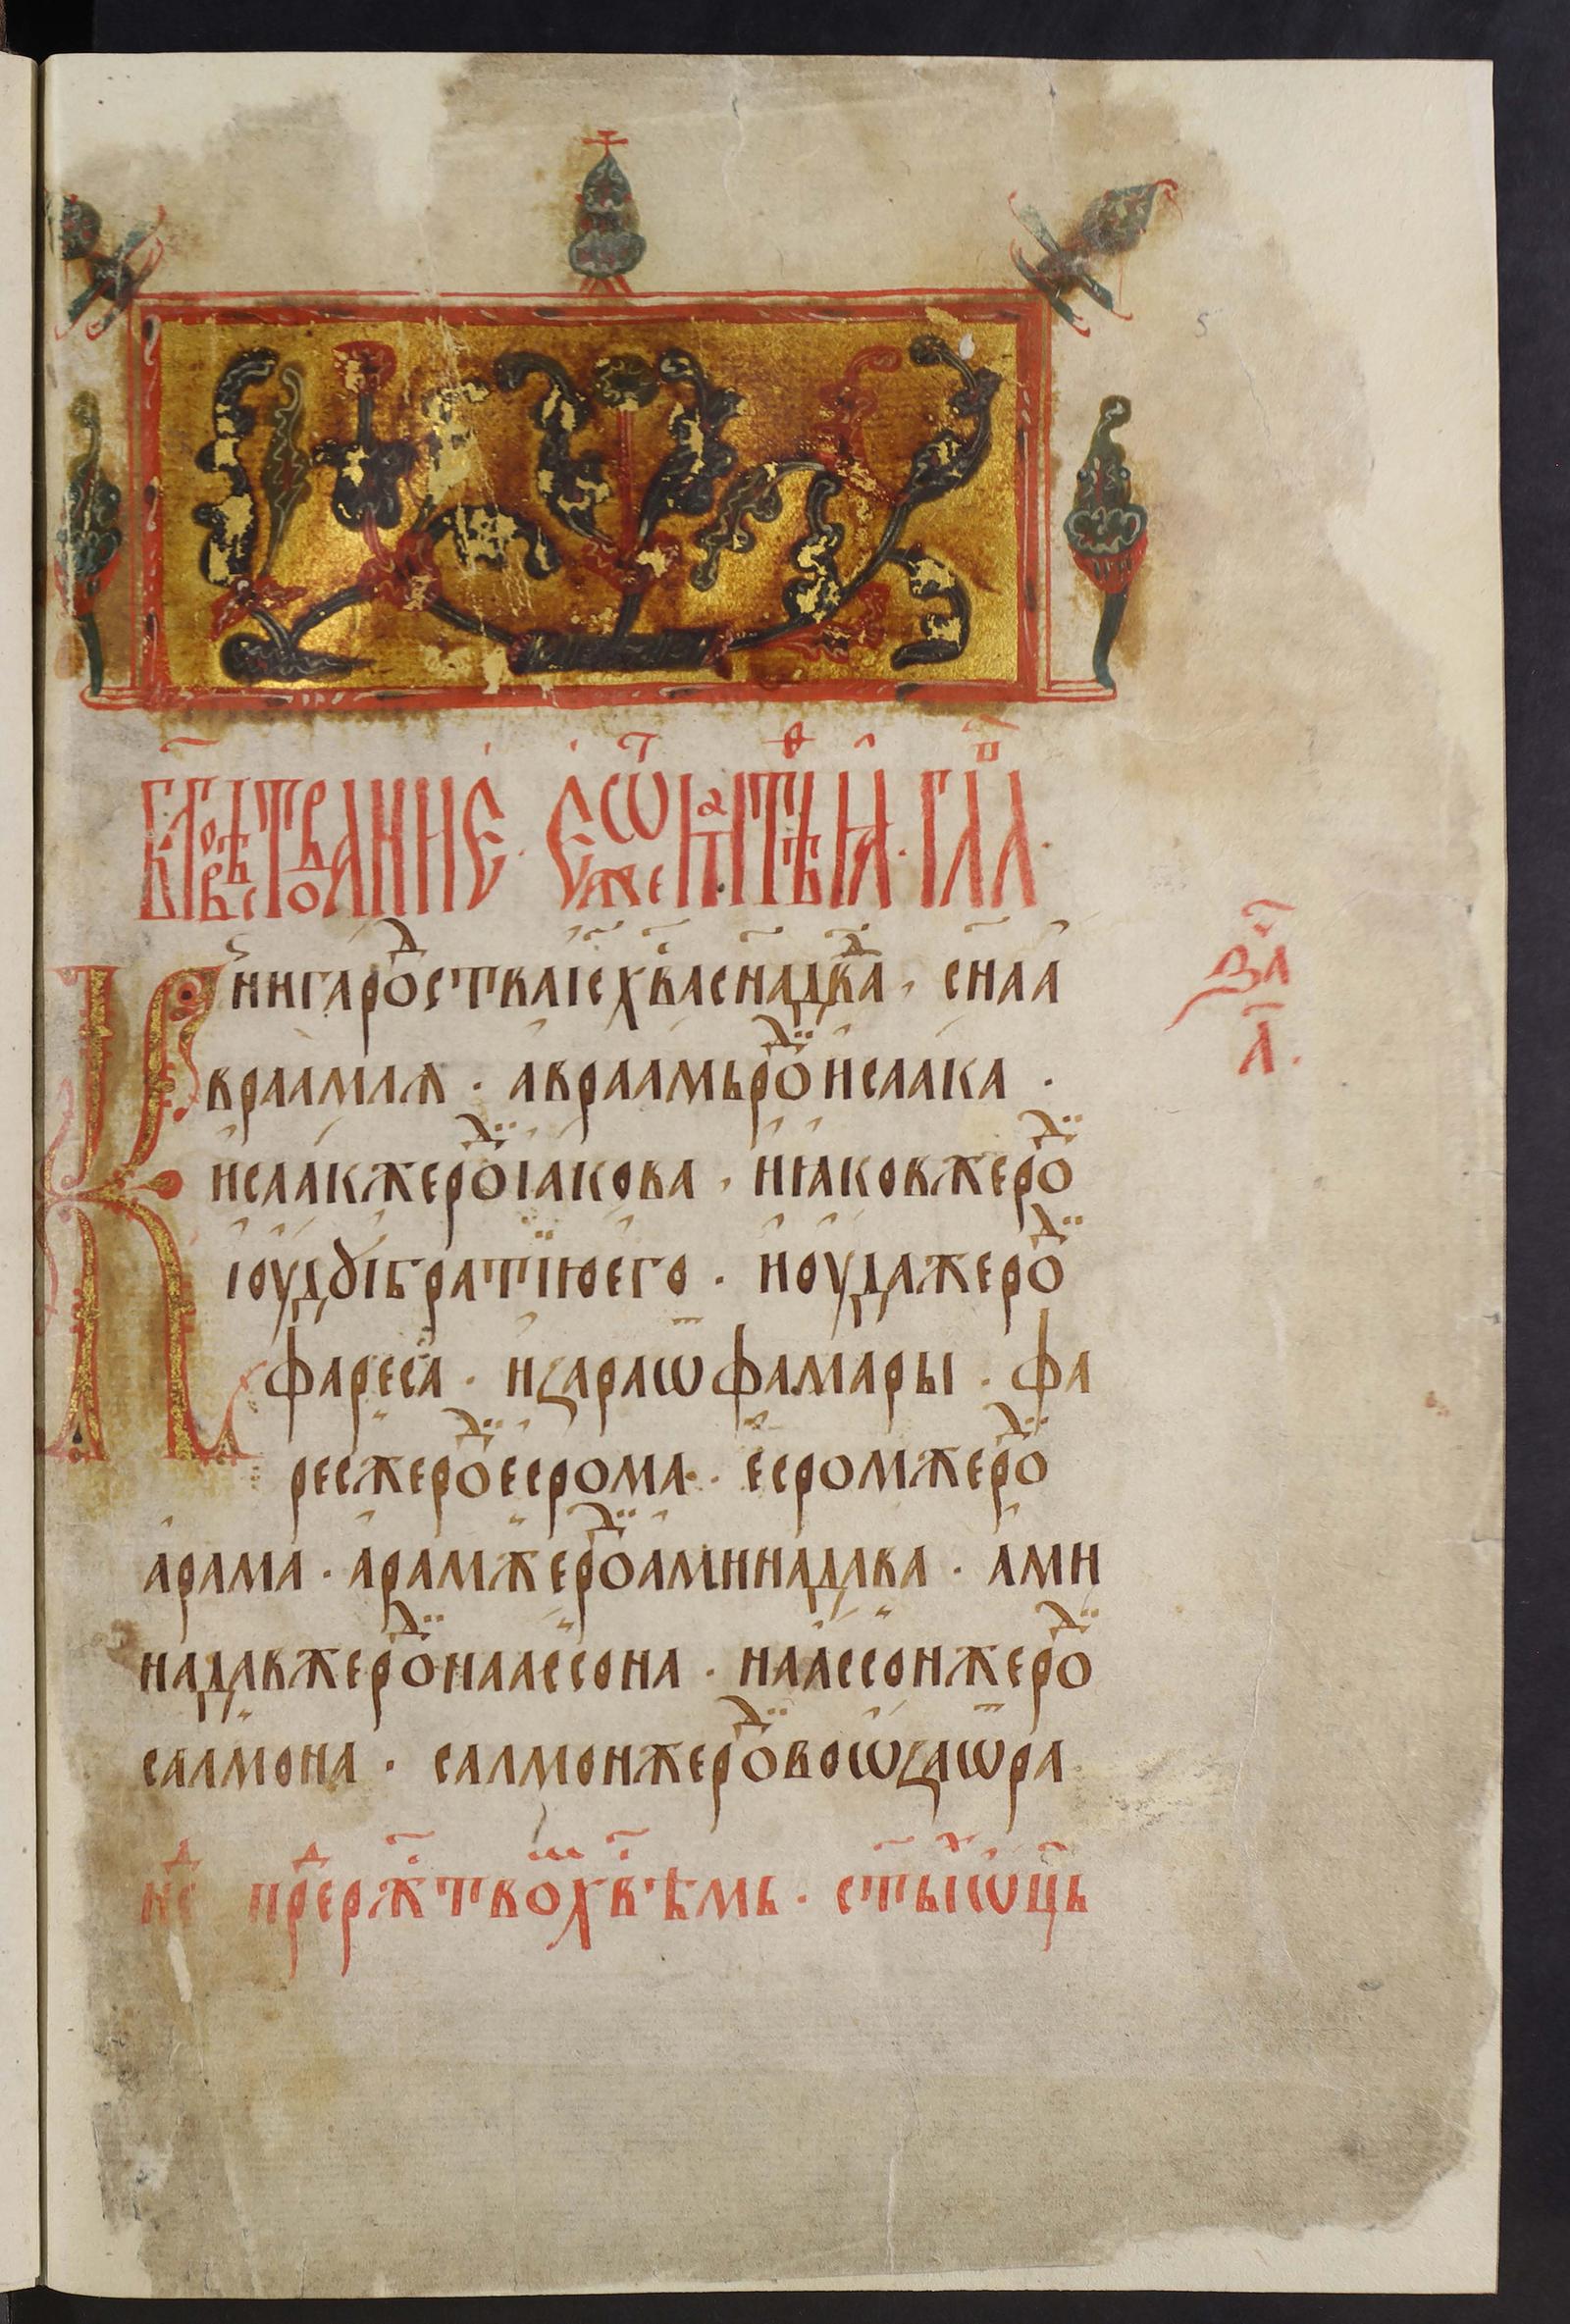 блговѣствованїе. еже ѿ матѳѣа. гла а҃.
Книга рѡд̾ства іс҃ х҃ва сн҃а дв҃да, сн҃а а
враамля. авраамь родⷣ исаака.
исаак же родⷣ іакова, и іаков же родⷣ
іоудꙋ і братїю его. иоуда же родⷣ
фареса. и зара ѿ фамары. фа
рес же родⷣ есрома. есром же родⷣ
арама. арам же родⷣ аминадава. ами
надав же родⷣ наассона. наассон же родⷣ
салмона. салмон же родⷣ воѡза ѿ ра
неⷣ преⷣ ржⷭтвоⷨ хв҃ѣмь. ст҃ыⷯ ѡц҃ь
за҃
а҃.